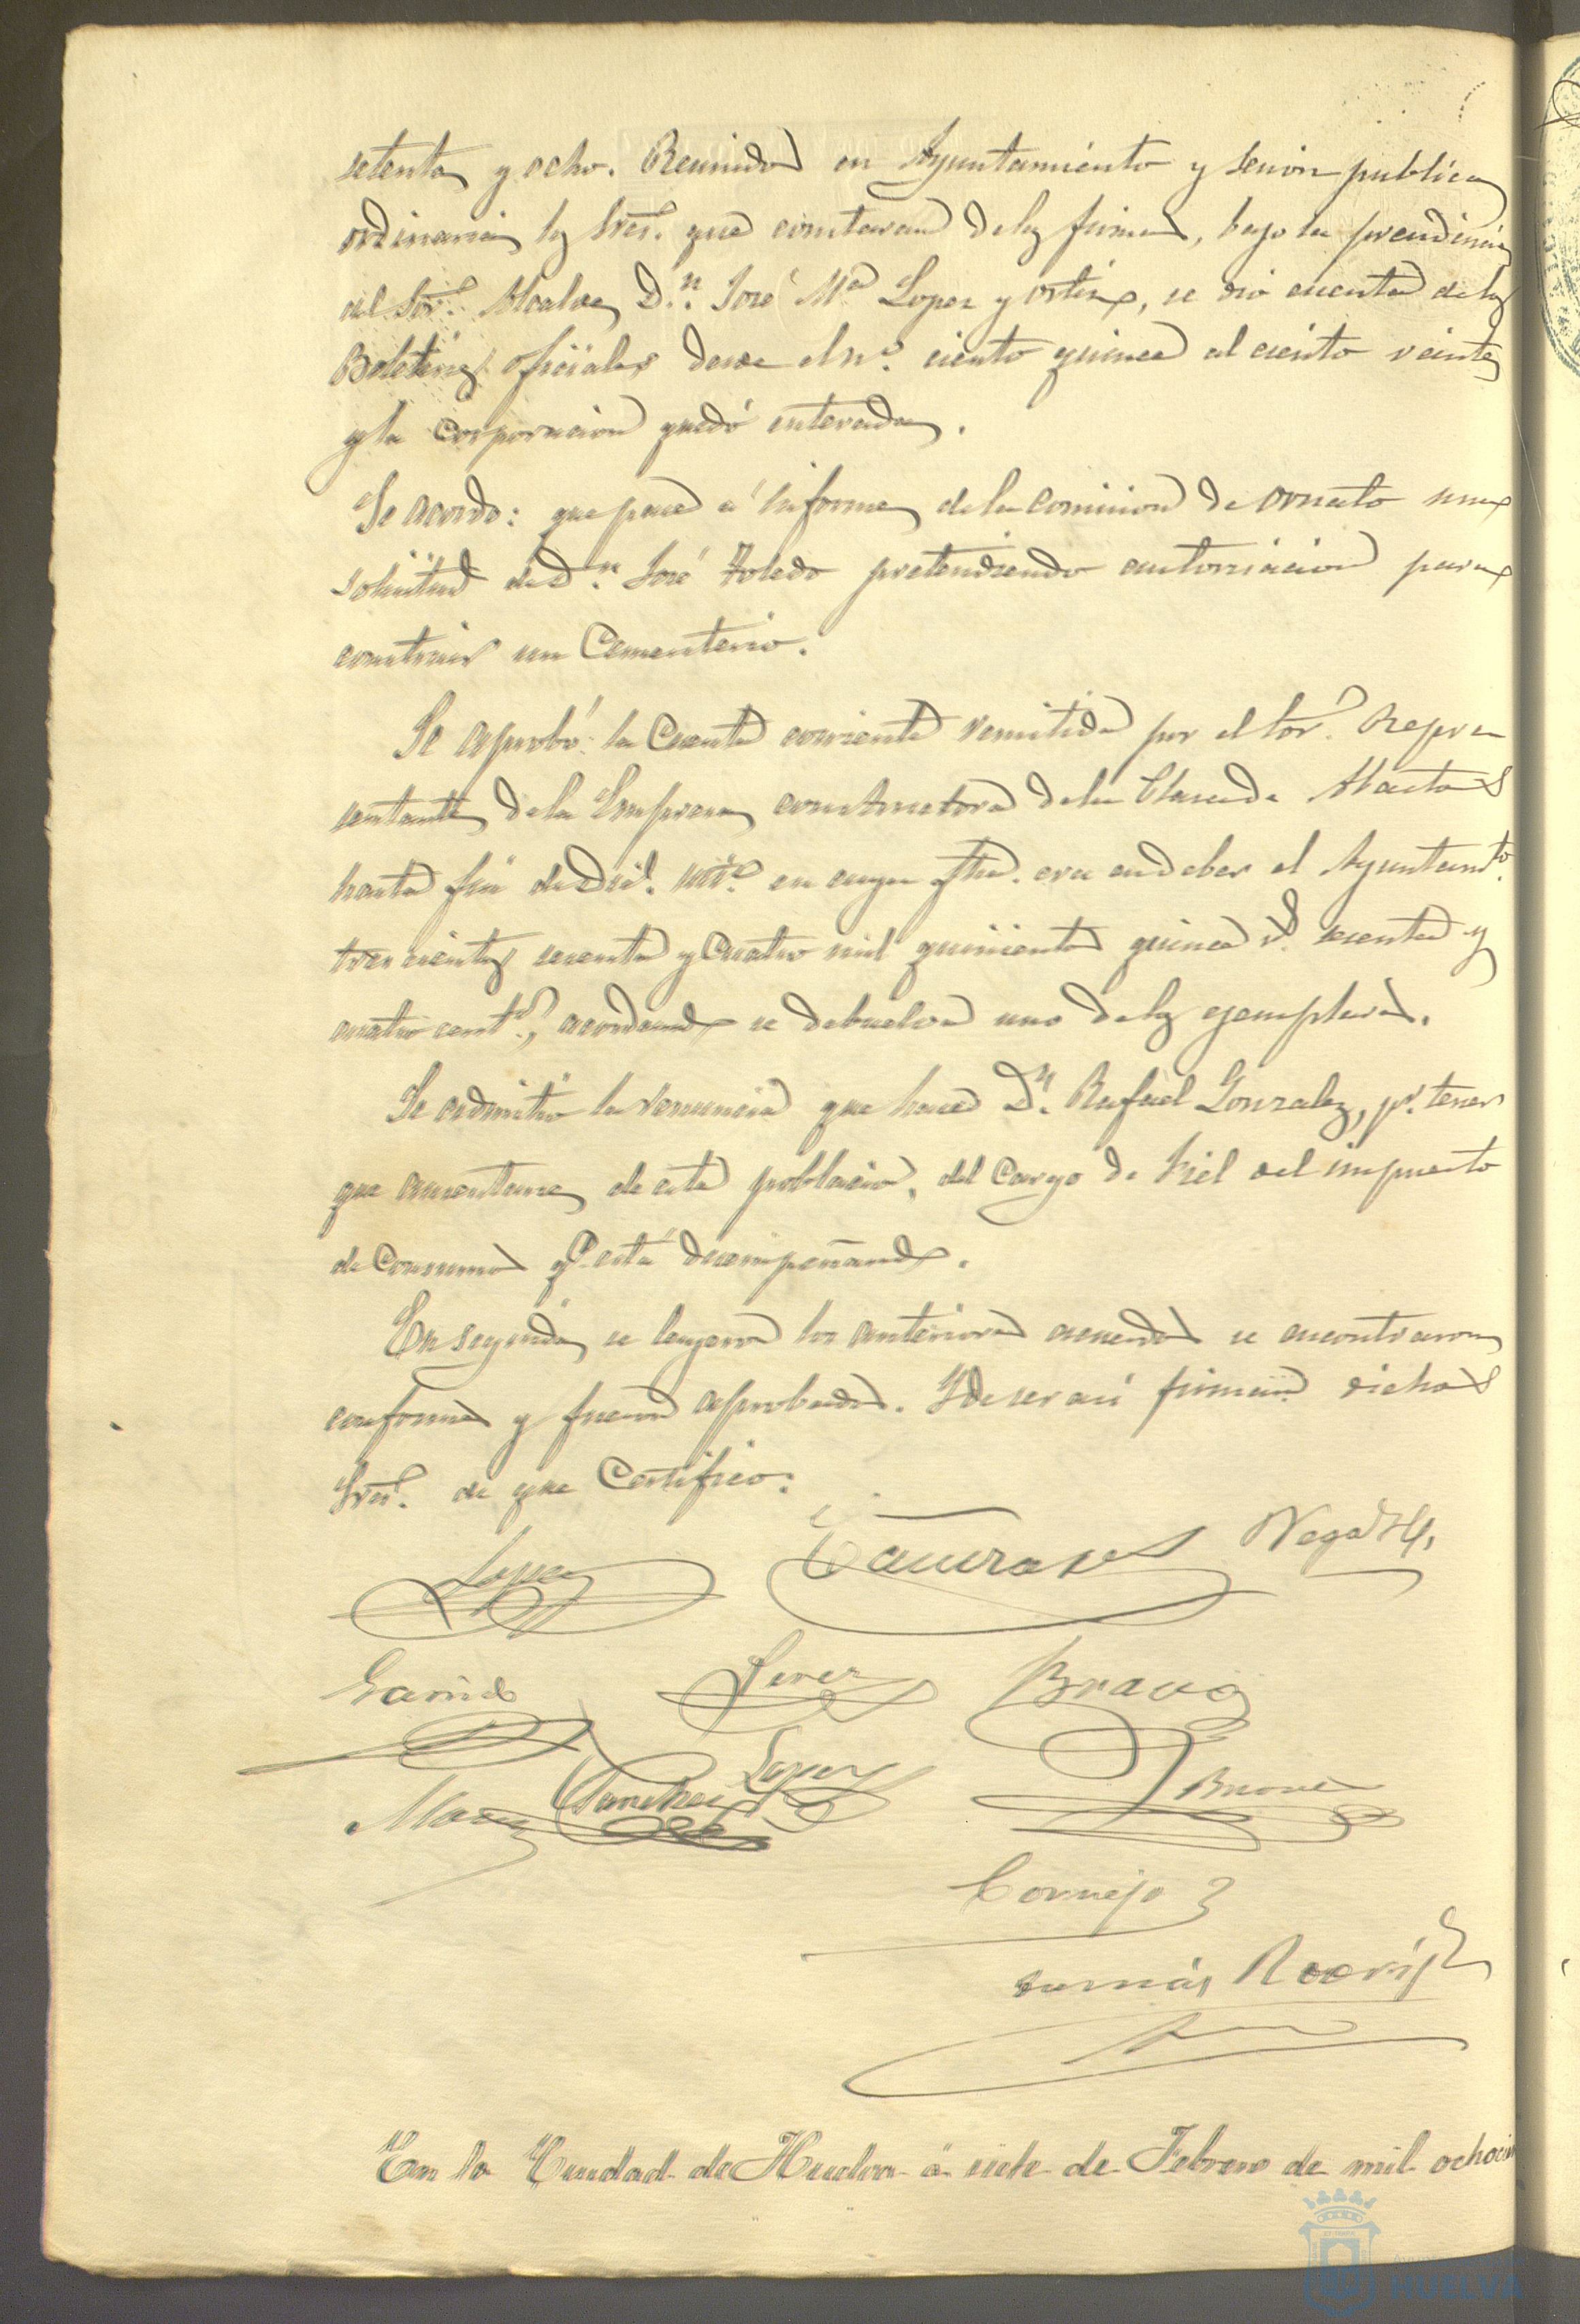 setenta y ocho. Reunidos en Ayuntamiento y sesion publica
ordinaria los Sres. que constaran de las firmas, bajo la presidencia
del Sor. Alcalde D.n José M.a Lopez y Ortiz, se dió cuenta de los
Boletines oficiales desde el n.o ciento quince al ciento veinte
y la corporacion quedó enterada.
Se acordó: que pase á informe de la comision de ornato una
solicitud de D.n José Toledo pretendiendo autorizacion para
construir un Cementerio.
Se aprobó la Cuenta corriente remitida por el Sor. Repre
sentante de la Empresa constructora de la Plaza de Abastos
hasta fin de Dic. en cuya fha. era en deber el Ayuntam.to
trescientos sesenta y cuatro mil quinientos quince r.s sesenta y
cuatro cent.s, acordando se debuelva uno de los ejemplares.
Se admitió la renuncia que hace D.n Rafael Gonzalez, p.r tener
que ausentarse de esta poblacion, del cargo de Fiel del impuesto
de Consumos q.e está desempeñando.
En seguida se leyeron los anteriores acuerdos se encontraron
conformes y fueron aprobados. Y de ser así firman dichos
Sres. de que Certifico.
Lopez Vega
Garrido Perez Bravo
Sanchez Lopez
Cornejo
Tomás Rodríg
En la Ciudad de Huelva á siete de Febrero de mil ochocien
HUELVA